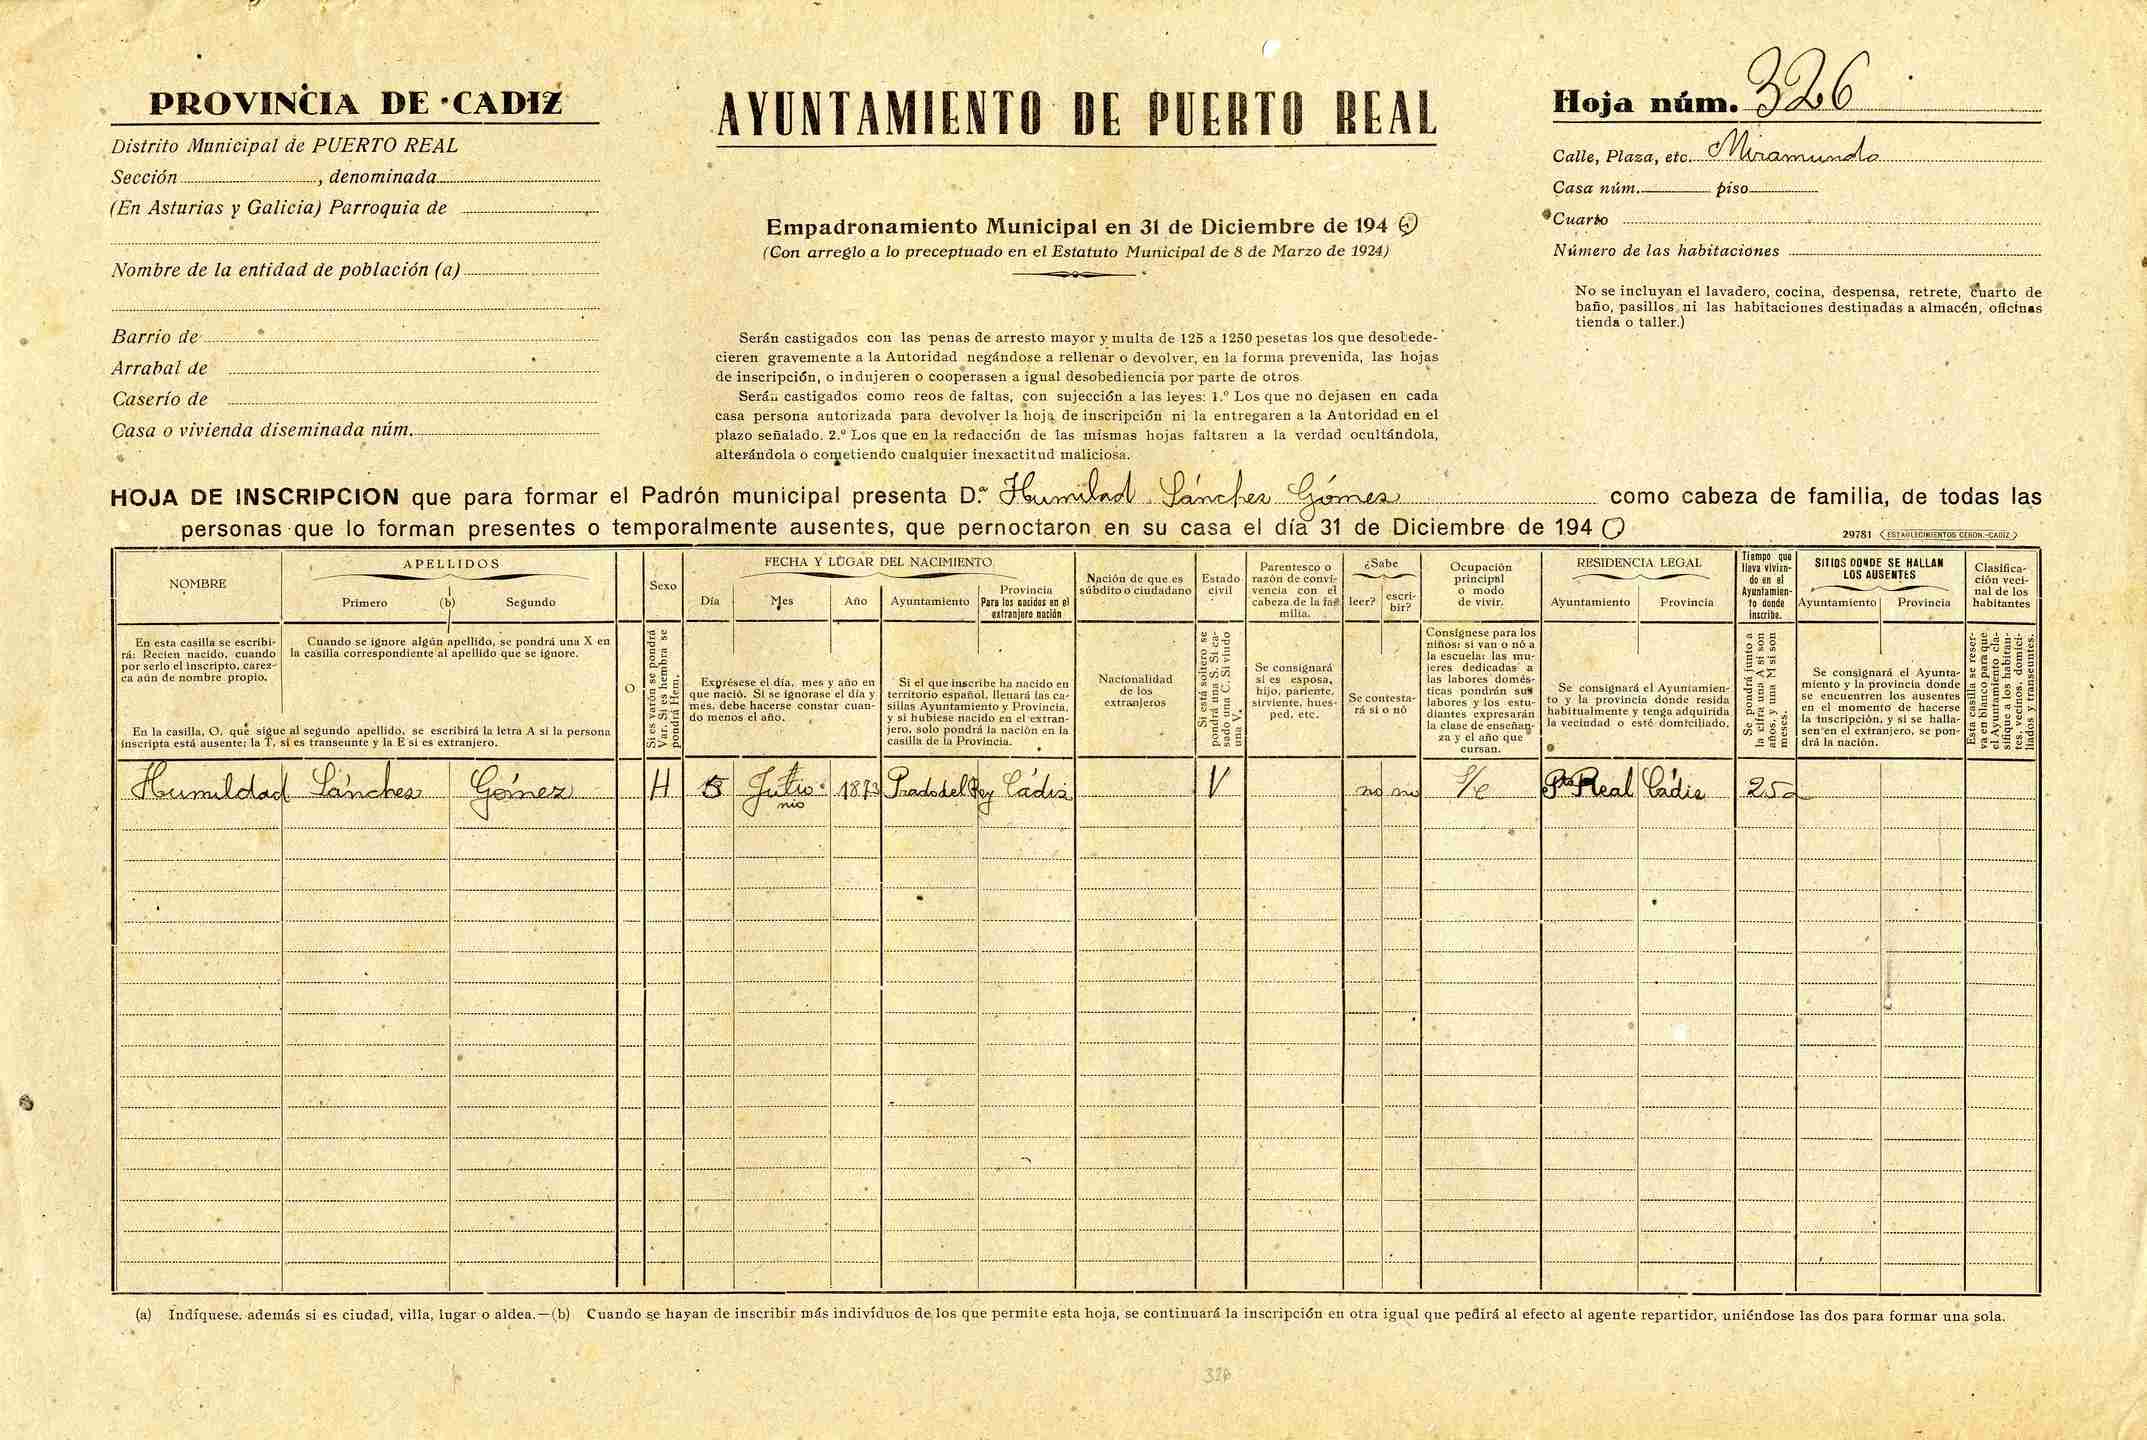 PROVINCIA DE CADIZ
Distrito Municipal de PUERTO REAL
Sección , denominada
(En Asturias y Galicia) Parroquia de
Nombre de la entidad de población (a)
Barrio de
Arrabal de
Caserío de
Casa o vivienda diseminada núm.
AYUNTAMIENTO DE PUERTO REAL
Empadronamiento Municipal en 31 de Diciembre de 194
(Con arreglo a lo preceptuado en el Estatuto Municipal de 8 de Marzo de 1924)
Serán castigados con las penas de arresto mayor y multa de 125 a 1250 pesetas los que desobede-
cieren gravemente a la Autoridad negándose a rellenar o devolver, en la forma prevenida, las hojas
de inscripción, o indujeren o cooperasen a igual desobediencia por parte de otros
Serán castigados como reos de faltas, con sujección a las leyes: 1.º Los que no dejasen en cada
casa persona autorizada para devolver la hoja de inscripción ni la entregaren a la Autoridad en el
plazo señalado. 2.º Los que en la redacción de las mismas hojas faltaren a la verdad ocultándola,
alterándola o cometiendo cualquier inexactitud maliciosa.
Hoja núm. 326
Calle, Plaza, etc. Miramundo
Casa núm. piso
Cuarto
Número de las habitaciones
No se incluyan el lavadero, cocina, despensa, retrete, cuarto de
baño, pasillos, ni las habitaciones destinadas a almacén, oficinas
tienda o taller.)
HOJA DE INSCRIPCION que para formar el Padrón municipal presenta D.ª Humilad Sánchez Gómez como cabeza de familia, de todas las
personas que lo forman presentes o temporalmente ausentes, que pernoctaron en su casa el día 31 de Diciembre de 1940
29781 (ESTABLECIMIENTOS CERON.-CADIZ)
NOMBRE
APELLIDOS
Primero (b) Segundo
Sexo
FECHA Y LUGAR DEL NACIMIENTO
Día Mes Año Ayuntamiento
Provincia
Para los nacidos en el
extranjero nación
Nación de que es
súbdito o ciudadano
Estado
civil
Parentesco o
razón de convi-
vencia con el
cabeza de la fa-
milia.
¿Sabe
leer? escri-
bir?
Ocupación
principal
o modo
de vivir.
RESIDENCIA LEGAL
Ayuntamiento Provincia
Tiempo que
lleva vivien-
do en el
Ayuntamien-
to donde
inscribe.
SITIOS DONDE SE HALLAN
LOS AUSENTES
Ayuntamiento Provincia
Clasifica-
ción veci-
nal de los
habitantes
En esta casilla se escribi-
rá: Recien nacido, cuando
por serlo el inscripto, carez-
ca aún de nombre propio.
Cuando se ignore algún apellido, se pondrá una X en
la casilla correspondiente al apellido que se ignore.
En la casilla, O, que sigue al segundo apellido, se escribirá la letra A si la persona
inscripta está ausente; la T, si es transeunte y la E si es extranjero.
O
Si es varón se pondrá
Var. Si es hembra se
pondrá Hem.
Expresese el día, mes y año en
que nació. Si se ignorase el día y
mes, debe hacerse constar cuan-
do menos el año.
Si el que inscribe ha nacido en
territorio español, llenará las ca-
sillas Ayuntamiento y Provincia,
y si hubiese nacido en el extran-
jero, solo pondrá la nación en la
casilla de la Provincia.
Nacionalidad
de los
extranjeros
Si está soltero se
pondrá una S. Si ca-
sado una C. Si viudo
una V.
Se consignará
si es esposa,
hijo, pariente,
sirviente, hues-
ped, etc.
Se contesta-
rá sí o nó
Consígnese para los
niños: si van o nó a
la escuela: las mu-
jeres dedicadas a
las labores domés-
ticas pondrán sus
labores y los estu-
diantes expresarán
la clase de enseñan-
za y el año que
cursan.
Se consignará el Ayuntamien-
to y la provincia donde resida
habitualmente y tenga adquirida
la vecindad o esté domiciliado.
Se pondrá junto a
la cifra una A si son
años, y una M si son
meses.
Se consignará el Ayunta-
miento y la provincia donde
se encuentren los ausentes
en el momento de hacerse
la inscripción, y si se halla-
sen en el extranjero, se pon-
drá la nación.
Esta casilla se reser-
va en blanco para que
el Ayuntamiento cla-
sifique a los habitan-
tes, vecinos, domici-
liados y transeuntes.
Humildad Sánchez Gómez H Julio nio 1873 Prado del Rey Cádiz V no no S/c Pto Real Cádiz 25a
(a) Indíquese, además si es ciudad, villa, lugar o aldea.—(b) Cuando se hayan de inscribir más indivíduos de los que permite esta hoja, se continuará la inscripción en otra igual que pedirá al efecto al agente repartidor, uniéndose las dos para formar una sola.
326